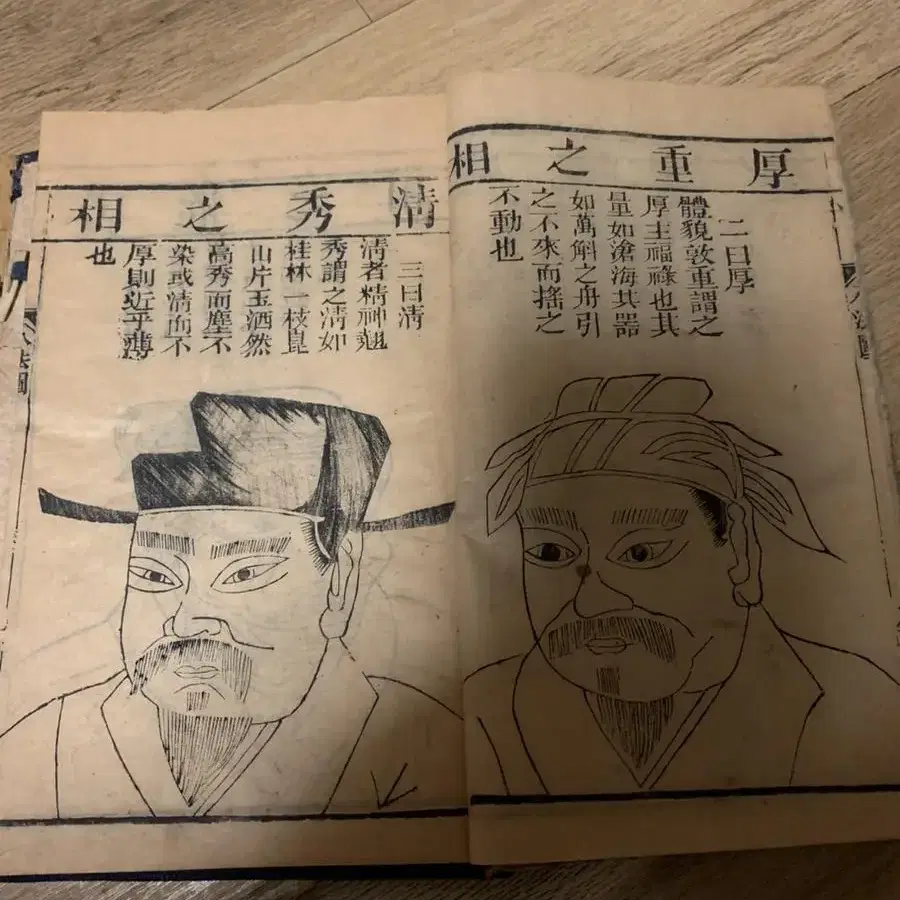 厚重之相
二曰厚
體貌敦重謂之
厚主福祿也其
量如滄海其器
如萬斛之舟引
之不來而搖之
不動也
清秀之相
三曰清
清者精神翹
秀謂之清如
桂林一枝崑
山片玉洒然
高秀而塵不
染或清而不
厚則近乎薄
也